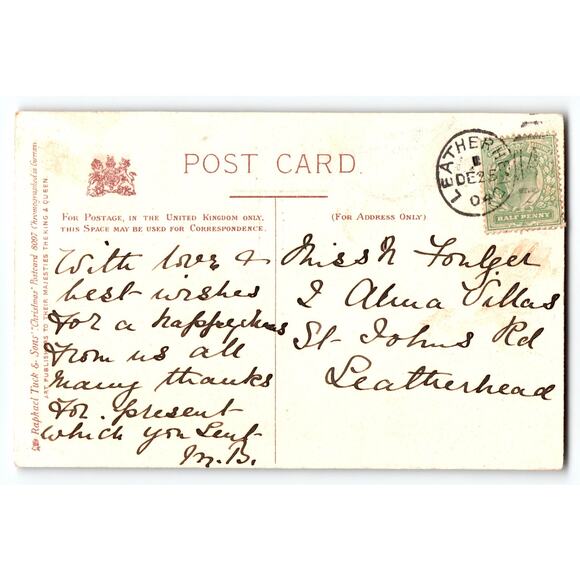 POST CARD.
FOR POSTAGE, IN THE UNITED KINGDOM ONLY,
THIS SPACE MAY BE USED FOR CORRESPONDENCE.
(FOR ADDRESS ONLY)
LEATHERH
DE 25
04
HALF PENNY
With love &
best wishes
For a happy Xmas
From us all
Many thanks
For present
which you Sent
M.B.
Miss N Foulger
2 Alma Villas
St Johns Rd
Leatherhead
Raphael Tuck & Sons' "Christmas" Postcard 8097 Chromographed in
ART PUBLISHERS TO THEIR MAJESTIES THE KING & QUEEN.